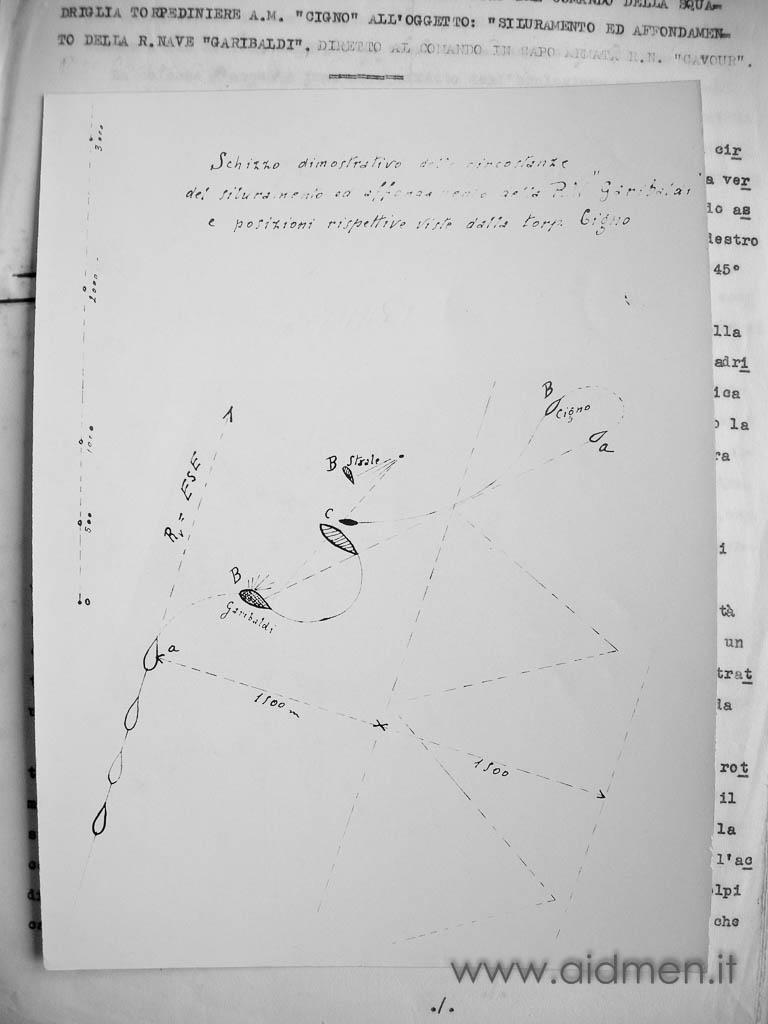 DRIGLIA TORPEDINIERE A.M. "CIGNO" ALL'OGGETTO: "SILURAMENTO ED AFFONDAMEN-
TO DELLA R.NAVE "GARIBALDI". DIRETTO AL COMANDO IN CAPO ARMATA R.N. "CAVOUR".
Schizzo dimostrativo delle circostanze
del siluramento ed affondamento della R.N. "Garibaldi"
e posizioni rispettive viste dalla torp. Cigno
3000
2000
1000
500
0
Rv = ESE
B
Cigno
a
B Strale
C
B
Garibaldi
a
1500 m
1500
cir
a ver
io as
destro
45°
lla
adri
ica
o la
ra
i
tà
un
trat
la
rot
il
la
l'ac
lpi
che
www.aidmen.it
./.